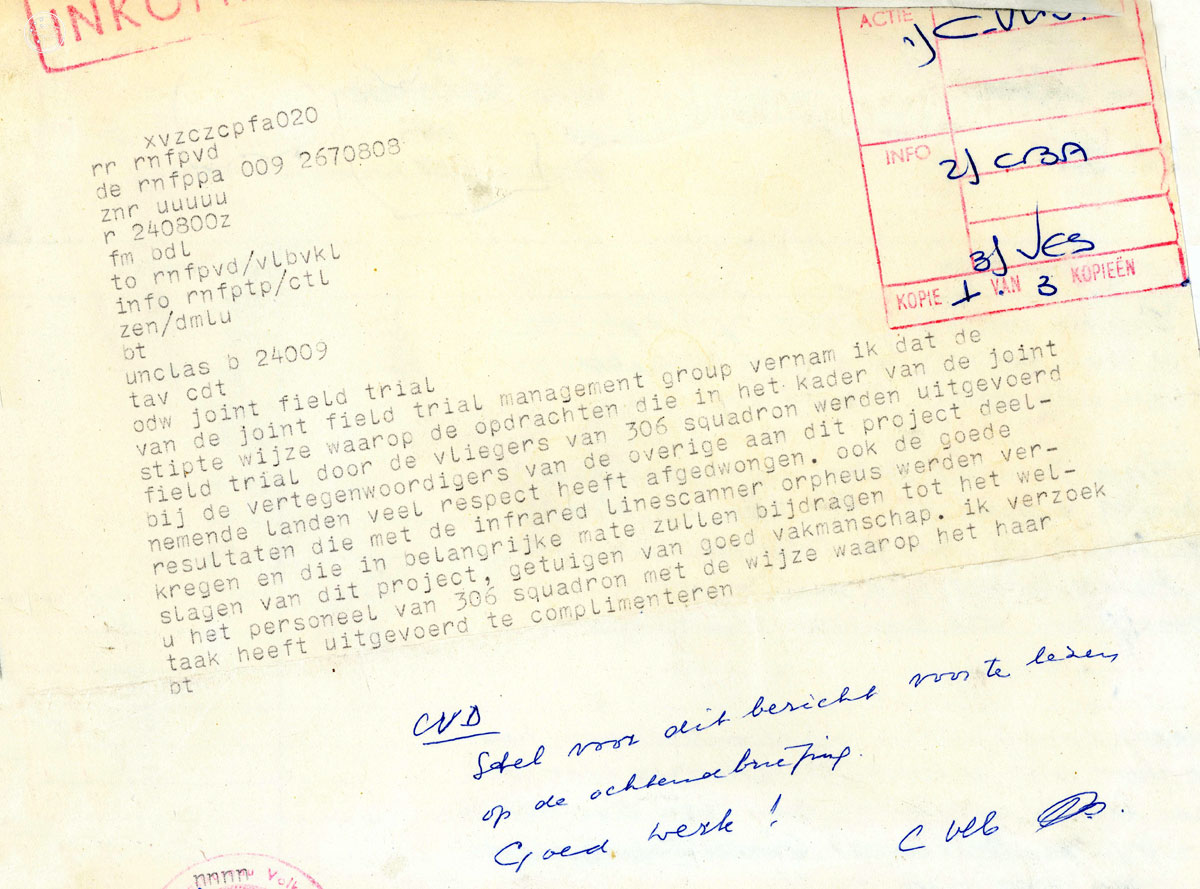 INKOM
ACTIE
1)
INFO
2) CBA
3) VES
KOPIE 1 VAN 3 KOPIEËN
xvzczcpfa020
rr rnfpvd
de rnfppa 009 2670808
znr uuuuu
r 240800z
fm bdl
to rnfpvd/vlbvkl
info rnfptp/ctl
zen/dmlu
bt
unclas b 24009
tav cdt
odw joint field trial
van de joint field trial management group vernam ik dat de
stipte wijze waarop de opdrachten die in het kader van de joint
field trial door de vliegers van 306 squadron werden uitgevoerd
bij de vertegenwoordigers van de overige aan dit project deel-
nemende landen veel respect heeft afgedwongen. ook de goede
resultaten die met de infrared linescanner orpheus werden ver-
kregen en die in belangrijke mate zullen bijdragen tot het wel-
slagen van dit project, getuigen van goed vakmanschap. ik verzoek
u het personeel van 306 squadron met de wijze waarop het haar
taak heeft uitgevoerd te complimenteren
bt
CVD
Stel voor dit bericht voor te lezen
op de ochtendbriefing.
Goed werk !
C Vlb
nnnn